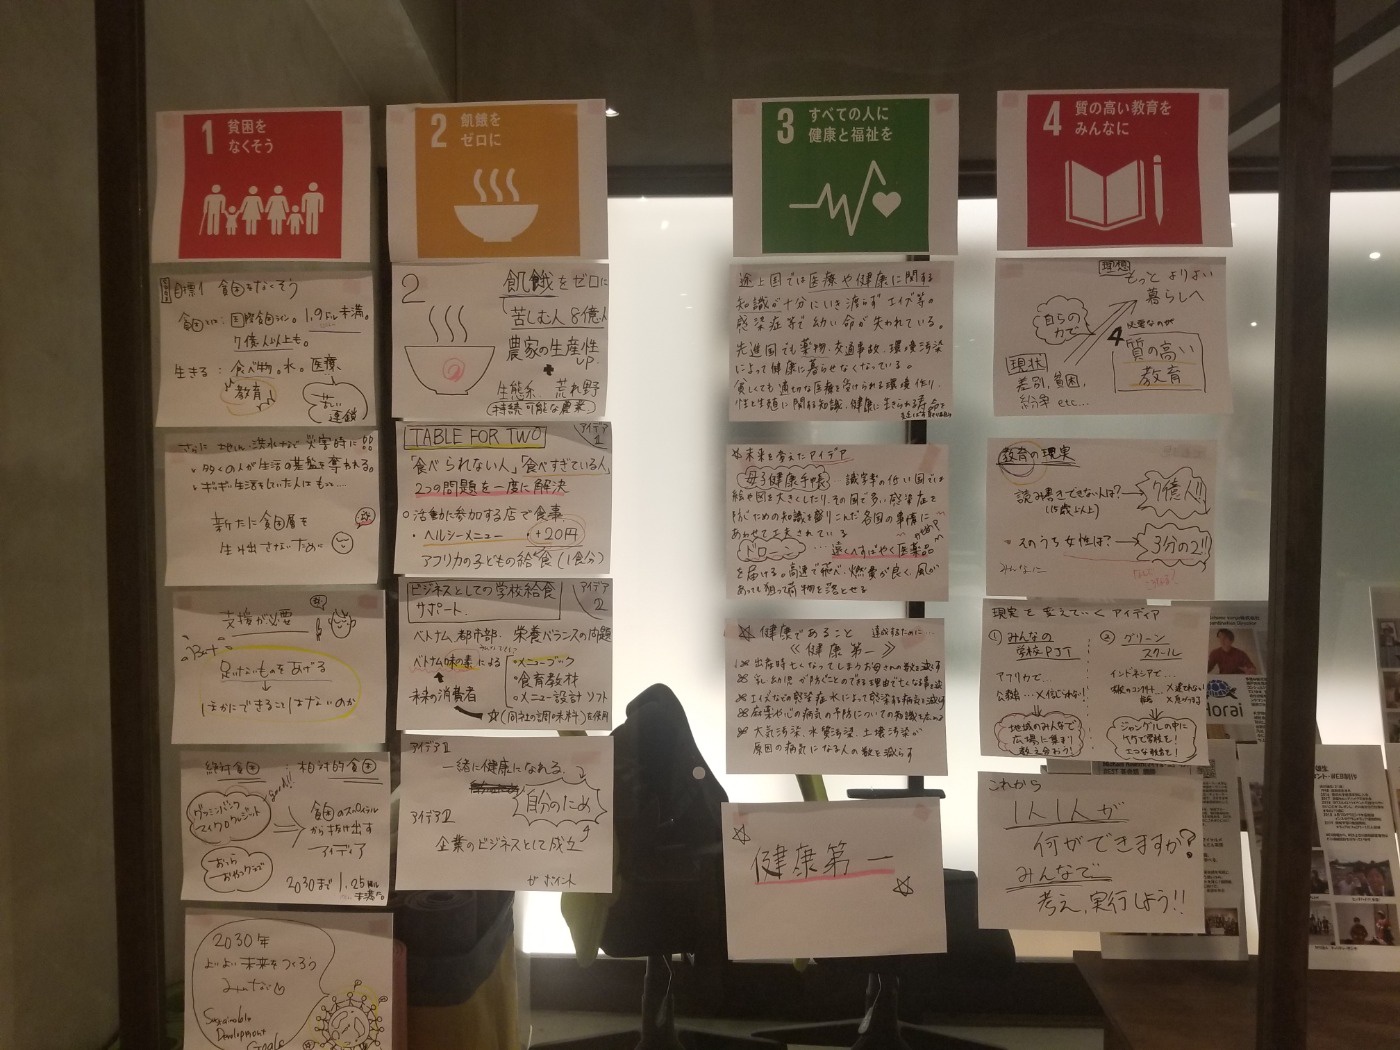 1 貧困を
なくそう
目標1 貧困をなくそう
貧困とは:国際貧困ライン。1.9ドル未満。
7億人以上も。
生きる:食べ物。水。医療、
教育
苦しい
連鎖
さらに 地しん、洪水などで 災害時に!!
多くの人が生活の基盤を奪われる。
ギギリ生活をしていた人はもっと…
新たに貧困層を
生み出さないために
支援が必要
足りないものをあげる
ほかにできることはないのか
絶対貧困 : 相対的貧困
グラミンバンク
マイクロクレジット
貧困のスパイラル
から抜け出す
アイディア
おてら
おやつクラブ
2030まで 1.25ドル
未満
2030年
よりよい未来をつくろう
みんなで
Sustainable
Development
Goals
2 飢餓を
ゼロに
2 飢餓をゼロに
苦しむ人 8億人
農家の生産性
up.
+
生態系、荒れ野
(持続可能な農業)
TABLE FOR TWO
アイデア
1
「食べられない人」「食べすぎている人」
2つの問題を一度に解決
○活動に参加する店で食事、
・ヘルシーメニュー +20円
アフリカの子どもの給食(1食分)
ビジネスとしての学校給食
サポート.
アイデア
2
ベトナム都市部、栄養バランスの問題
ベトナム味の素による
・メニューブック
・食育教材
・メニュー設計ソフト
未来の消費者
☆(同社の調味料)を使用
アイデア1
一緒に健康になれる
自分のため
アイデア2
企業のビジネスとして成立
がポイント
3 すべての人に
健康と福祉を
途上国では医療や健康に関する
知識が十分にいき渡らず エイズ等の
感染症等で幼い命が失われている。
先進国でも薬物、交通事故、環境汚染
によって健康に暮らせなくなっている。
貧しくても適切な医療を受けられる環境作り、
性と生殖に関する知識、健康に生きられる寿命を
☆未来を考えたアイデア
母子健康手帳… 識字率の低い国では
絵や図を大きくしたり、その国で多い感染症を
防ぐための知識を盛りこんだ各国の事情に
あわせて工夫されている
ドローン… 遠くへすばやく医薬品
を届ける。高速で飛べ、燃費が良く、風が
あっても狙って荷物を落とせる
☆健康であること 達成するために…
《健康第一》
出産時亡くなってしまうお母さんの数を減らす
乳幼児が防ぐことのできる理由で亡くなる事を減
エイズなどの感染症、水によって感染する病気を減らす
麻薬や心の病気の予防についての知識を広める
大気汚染、水質汚染、土壌汚染が
原因の病気になる人の数を減らす
☆
健康第一
☆
4 質の高い教育を
みんなに
理想
もっと よりよい
暮らしへ
自らの
力で
4
必要なのが
質の高い
教育
現状
差別、貧困、
紛争 etc…
教育の現実
読み書きできない人は?→7億人!!
(15歳以上)
そのうち女性は?→3分の2!!
みんなに
現実を変えていくアイディア
① みんなの
学校PJT
② グリーン
スクール
アフリカで…
インドネシアで…
地域のみんなで
広場に集まり
教え合おう!
ジャングルの中に
竹で学校を!
エコな教育を!
これから
1人1人が
何ができますか?
みんなで
考え、実行しよう!!
Horai